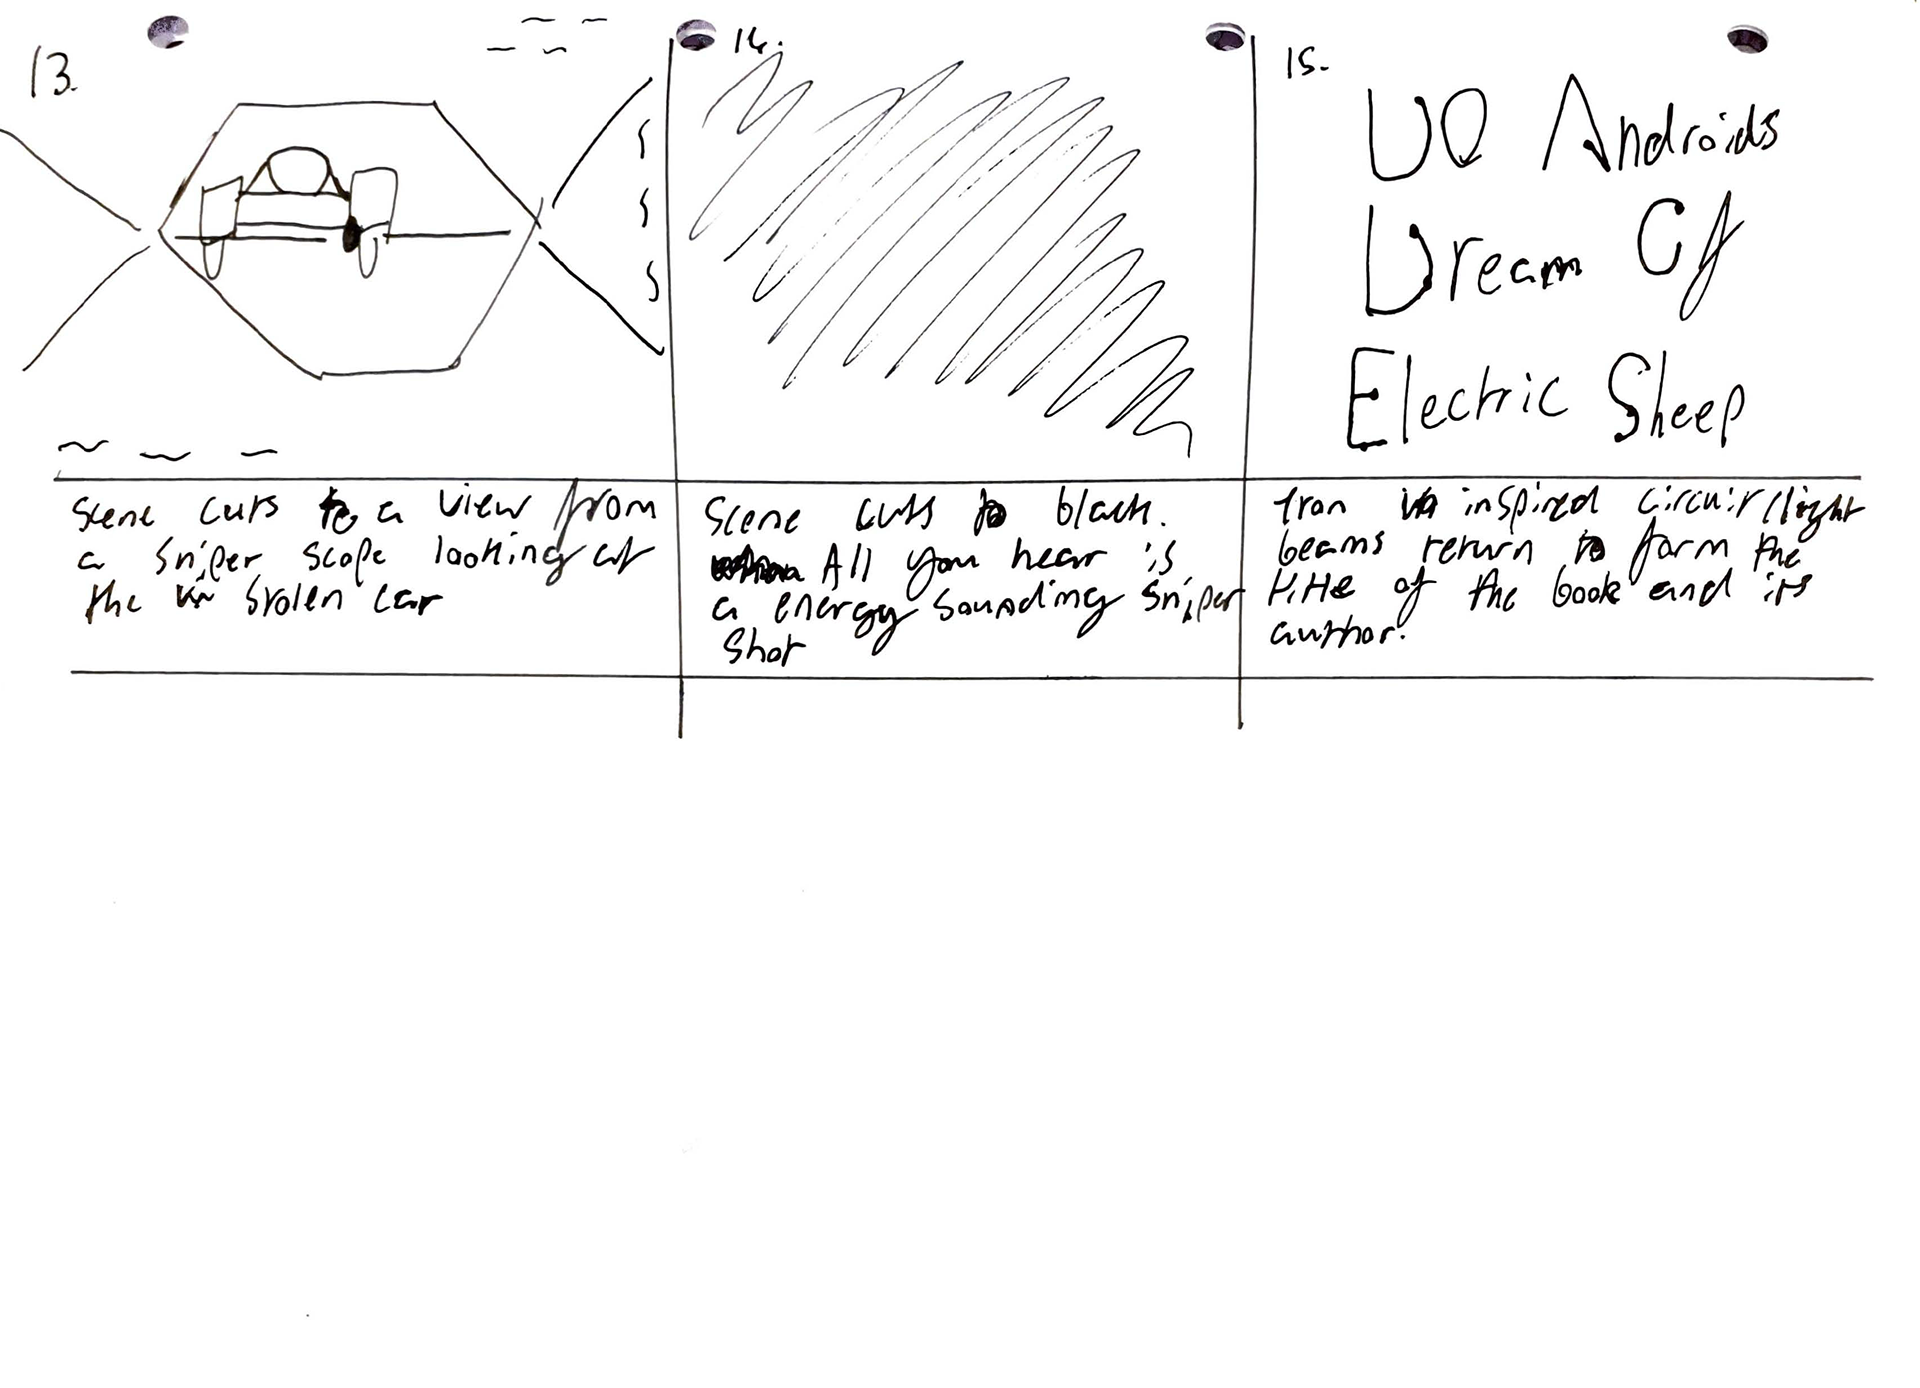 13.
Scene cuts to a view from
a sniper scope looking at
the stolen car
14.
Scene cuts to black.
All you hear is
a energy sounding sniper
shot
15.
DO Androids
Dream Of
Electric Sheep
tron inspired circuit/light
beams return to form the
title of the book and its
author.